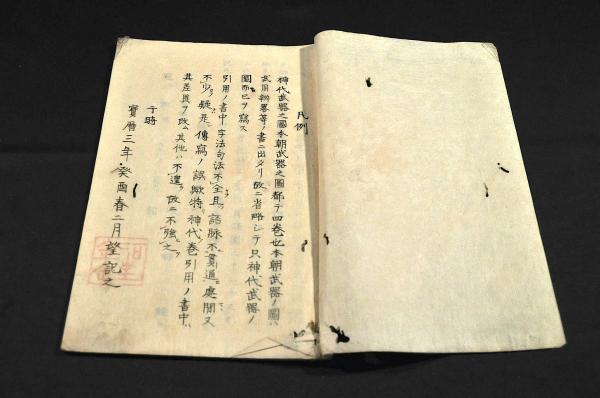 凡例
神代武器之圖本朝武器之圖都テ四巻也本朝武器ノ圖ハ
武用辨畧等ノ書ニ出タリ故ニ省略シテ只神代武器ノ
圖而已ヲ寫ス
引用ノ書中字法句法不全且語脉不貫通處間又
不少疑是傳寫ノ誤歟特神代巻引用ノ書中ハ
其差異ヲ改ム其他ハ不遑改ニ不強之
于時
寳暦三年癸酉春二月望記之